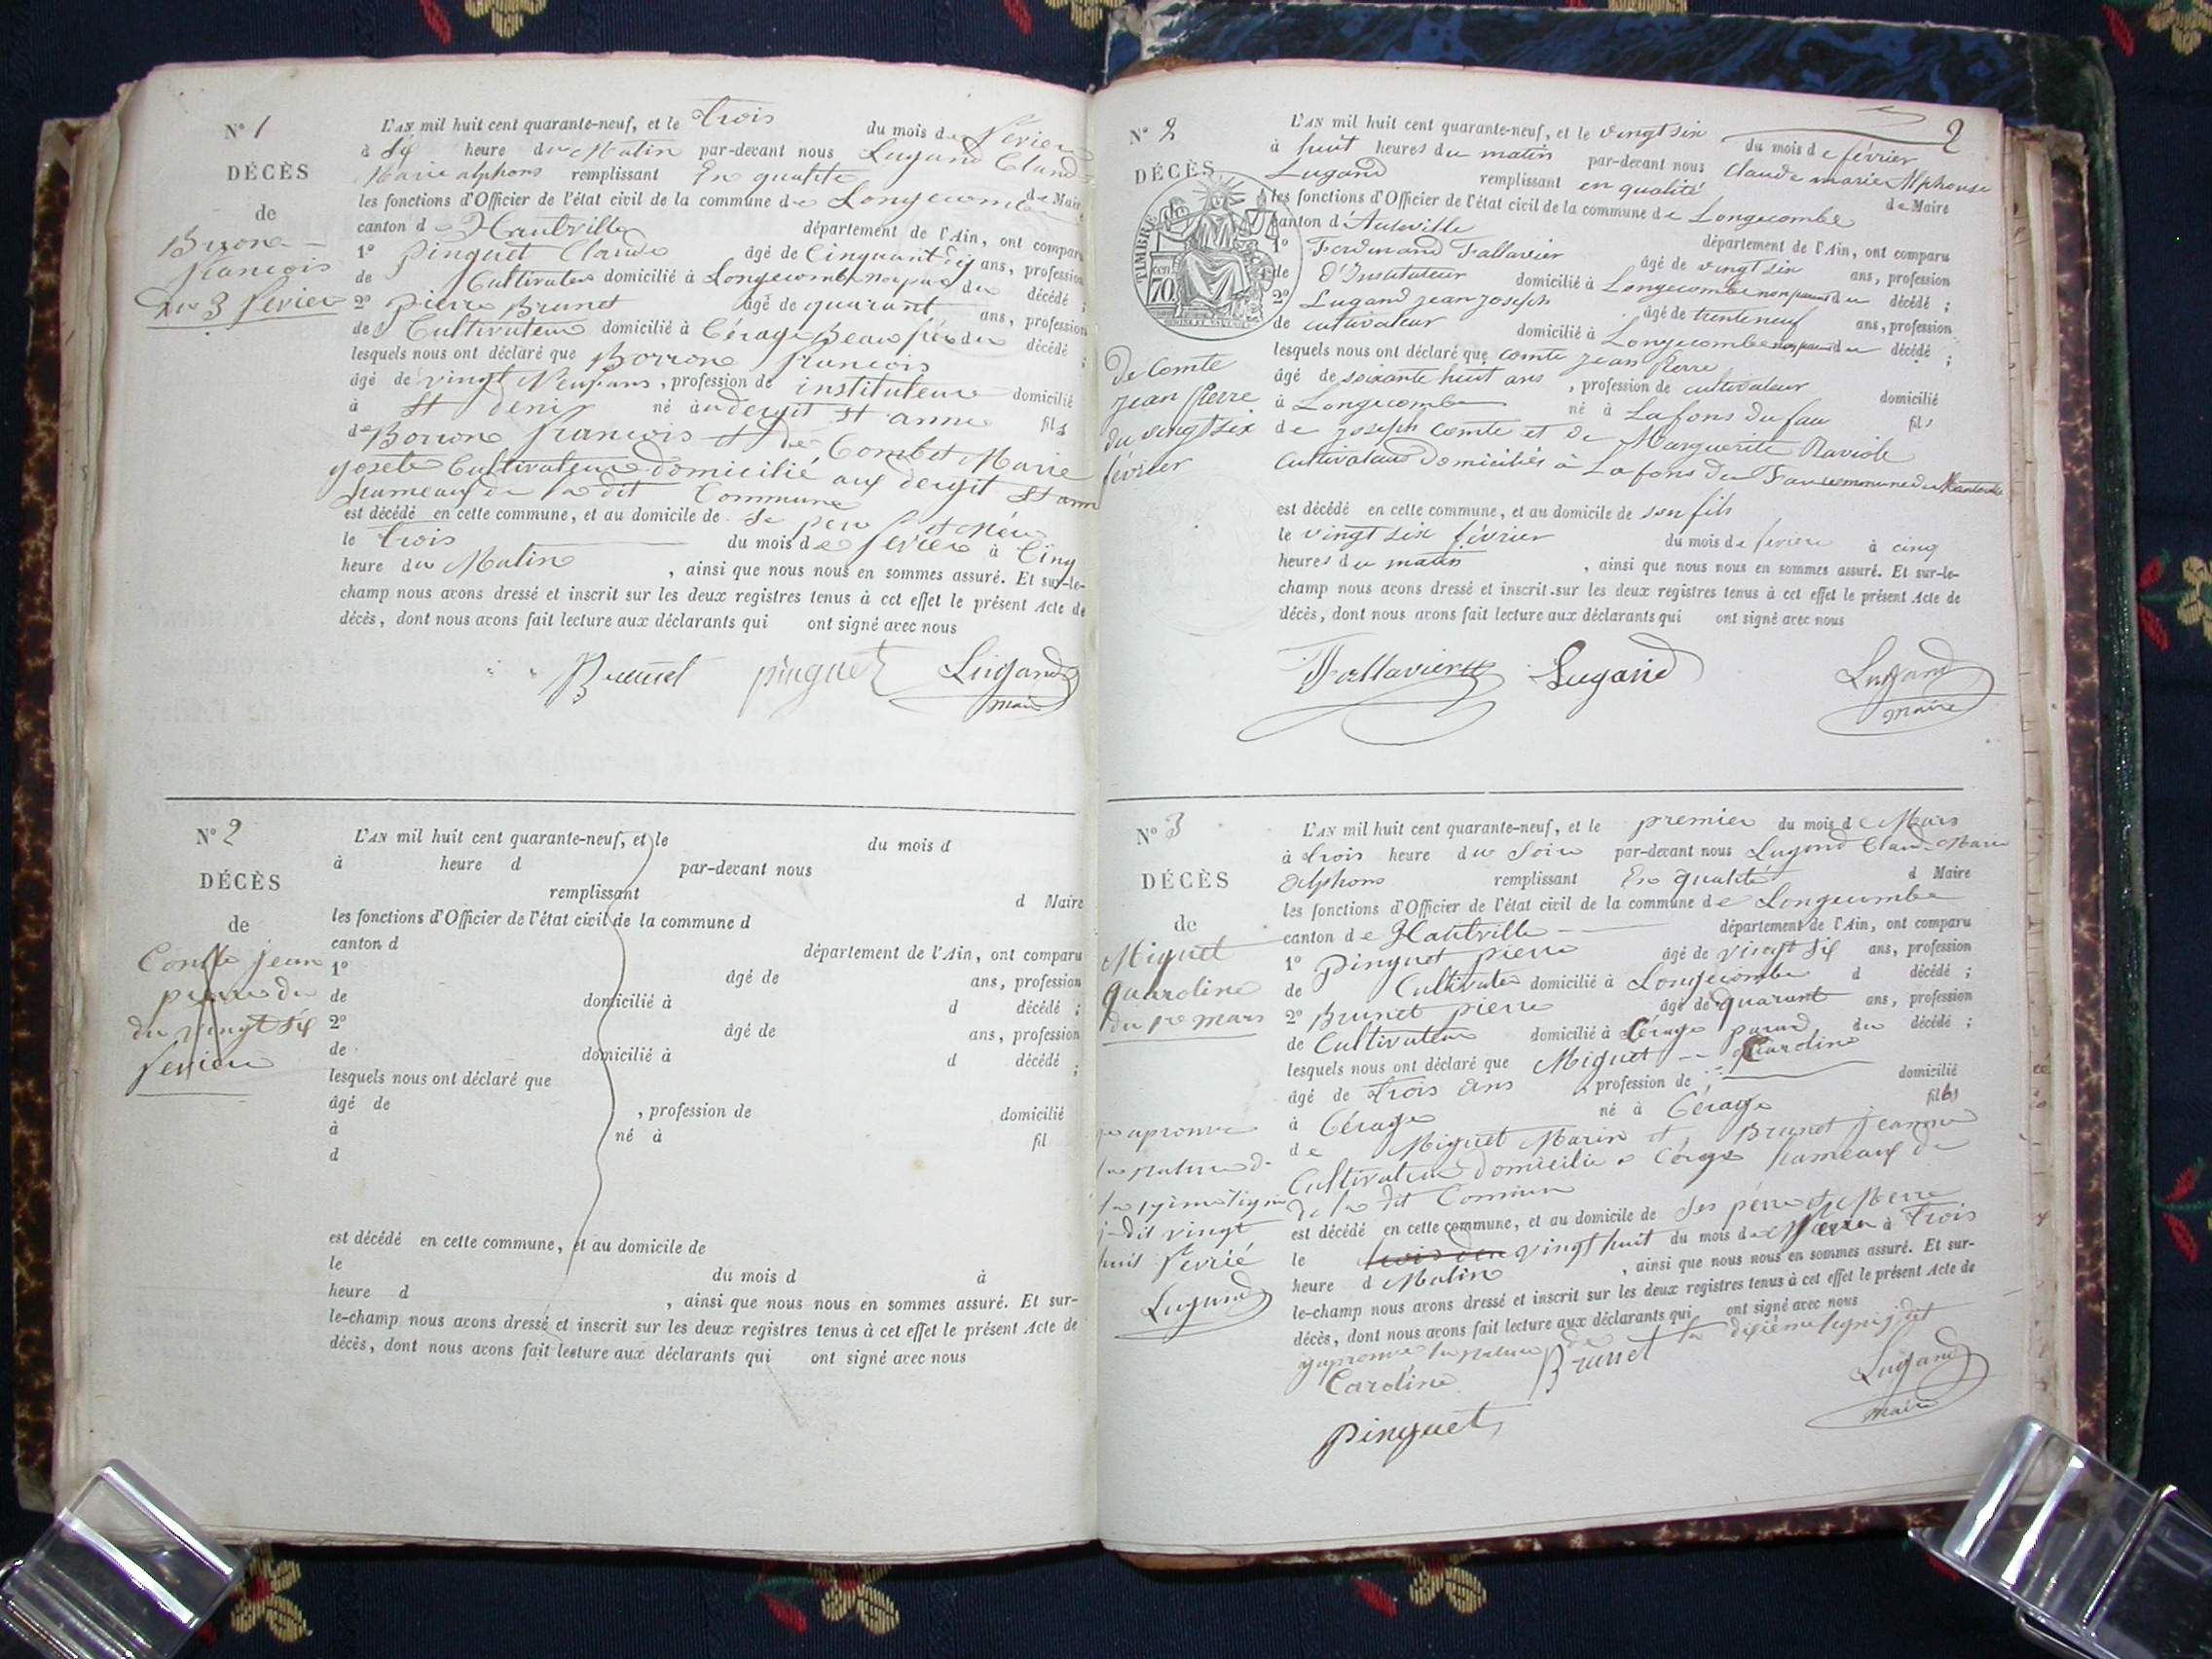 N° 1
DÉCÈS
de
françois
du 3 fevrier
L'AN mil huit cent quarante-neuf, et le trois du mois de fevrier
à heure du Matin par-devant nous Lugand Claude
Marie alphons remplissant En qualité de Maire
les fonctions d'Officier de l'état civil de la commune de Longecombe
canton de Hautville département de l'Ain, ont comparu
1° Pinguet Claude âgé de Cinquant ans, profession
de Cultivateur domicilié à Longecombe du décédé ;
2° pierre Brunet âgé de quarant ans, profession
de Cultivateur domicilié à Cérage Beau du décédé ;
lesquels nous ont déclaré que Borron françois
âgé de vingt Neuf ans, profession de instituteur domicilié
à St denis né au dergit St anne fils
de Borron françois et de Combet Marie
Cultivateur domicilié aux dergit St ann
hameaux de la dit Commune
est décédé en cette commune, et au domicile de Se per et Mére
le trois du mois de fevrier à Cinq
heure du Matin , ainsi que nous nous en sommes assuré. Et sur-le-
champ nous avons dressé et inscrit sur les deux registres tenus à cet effet le présent Acte de
décès, dont nous avons fait lecture aux déclarants qui ont signé avec nous
Brunet pinguet Lugand
maire
N° 2
DÉCÈS
de
Comte jean
pierre du
du vingt Six
fevrier
L'AN mil huit cent quarante-neuf, et le du mois d
à heure d par-devant nous
remplissant d Maire
les fonctions d'Officier de l'état civil de la commune d
canton d département de l'Ain, ont comparu
1° âgé de ans, profession
de domicilié à d décédé ;
2° âgé de ans, profession
de domicilié à d décédé ;
lesquels nous ont déclaré que
âgé de , profession de domicilié
à né à fil
d
est décédé en cette commune, et au domicile de
le du mois d à
heure d , ainsi que nous nous en sommes assuré. Et sur-
le-champ nous avons dressé et inscrit sur les deux registres tenus à cet effet le présent Acte de
décès, dont nous avons fait lecture aux déclarants qui ont signé avec nous
2
N° 2
DÉCÈS
TIMBRE
70
de Comte
jean Pierre
du vingt six
février
L'AN mil huit cent quarante-neuf, et le vingt six du mois de février
à huit heures du matin par-devant nous Claude marie Alphonse
Lugand remplissant en qualité de Maire
les fonctions d'Officier de l'état civil de la commune de Longecombe
canton d'Auteville département de l'Ain, ont comparu
1° Ferdinand Fallavier âgé de vingt six ans, profession
de d'Instituteur domicilié à Longecombe non parent du décédé ;
2° Lugand jean joseph âgé de trente neuf ans, profession
de cultivateur domicilié à Longecombe non parent du décédé ;
lesquels nous ont déclaré que comte jean Pierre
âgé de soixante huit ans , profession de cultivateur domicilié
à Longecombe né à Lafons du fau fils
de joseph comte et de Marguerite Raviole
cultivateurs domiciliés à Lafons du Fau commune de
est décédé en cette commune, et au domicile de son fils
le vingt six février du mois de fevrier à cinq
heures du matin , ainsi que nous nous en sommes assuré. Et sur-le-
champ nous avons dressé et inscrit sur les deux registres tenus à cet effet le présent Acte de
décès, dont nous avons fait lecture aux déclarants qui ont signé avec nous
Fallavier Lugand Lugand
maire
N° 3
DÉCÈS
de
Miguet
quaroline
du 1re mars
L'AN mil huit cent quarante-neuf, et le premier du mois de Mars
à trois heure du Soir par-devant nous Lugand Claude Marie
alphons remplissant En qualité d Maire
les fonctions d'Officier de l'état civil de la commune de Longecombe
canton de Hautville département de l'Ain, ont comparu
1° Pinguet pierre âgé de vingt Six ans, profession
de Cultivateur domicilié à Longecombe d décédé ;
2° Brunet pierre âgé de quarant ans, profession
de Cultivateur domicilié à Cérage parand du décédé ;
lesquels nous ont déclaré que Miguet Caroline
âgé de trois ans , profession de domicilié
à Cérage né à Cérage fil
de Miguet Marin et Brunet jeanne
Cultivateur domicilié a Hameaux de
de la dit Commune
est décédé en cette commune, et au domicile de Ses pére et Merre
le vingt huit du mois de à trois
heure d Matin , ainsi que nous nous en sommes assuré. Et sur-
le-champ nous avons dressé et inscrit sur les deux registres tenus à cet effet le présent Acte de
décès, dont nous avons fait lecture aux déclarants qui ont signé avec nous
Caroline Brunet Lugand
maire
Pinguet
aprouve
la rature d
vingt
huit fevrié
Lugand